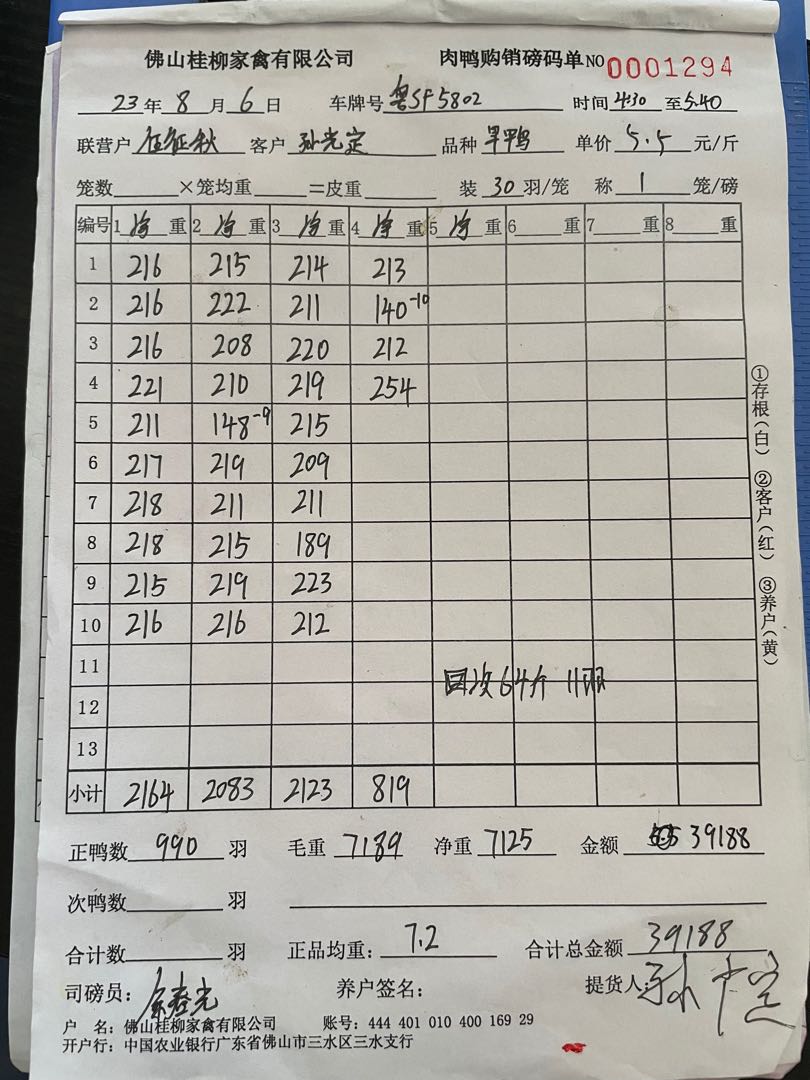 佛山桂柳家禽有限公司 肉鸭购销磅码单 NO 0001294
23年8月6日 车牌号 粤SF5802 时间 4:30 至 5:40
联营户 伍征秋 客户 孙光定 品种 旱鸭 单价 5.5 元/斤
笼数 ×笼均重 =皮重 装 30 羽/笼 称 1 笼/磅
编号 1 净 重 2 净 重 3 净 重 4 净 重 5 净 重 6 重 7 重 8 重
1 216 215 214 213
2 216 222 211 140-10
3 216 208 220 212
4 221 210 219 254
5 211 148-9 215
6 217 219 209
7 218 211 211
8 218 215 189
9 215 219 223
10 216 216 212
11
回次64斤 11羽
12
13
小计 2164 2083 2123 819
正鸭数 990 羽 毛重 7189 净重 7125 金额 39188
次鸭数 羽
合计数 羽 正品均重: 7.2 合计总金额 39188
司磅员: 养户签名: 提货人:
户 名: 佛山桂柳家禽有限公司 账号: 444 401 010 400 169 29
开户行: 中国农业银行广东省佛山市三水区三水支行
①存根(白) ②客户(红) ③养户(黄)